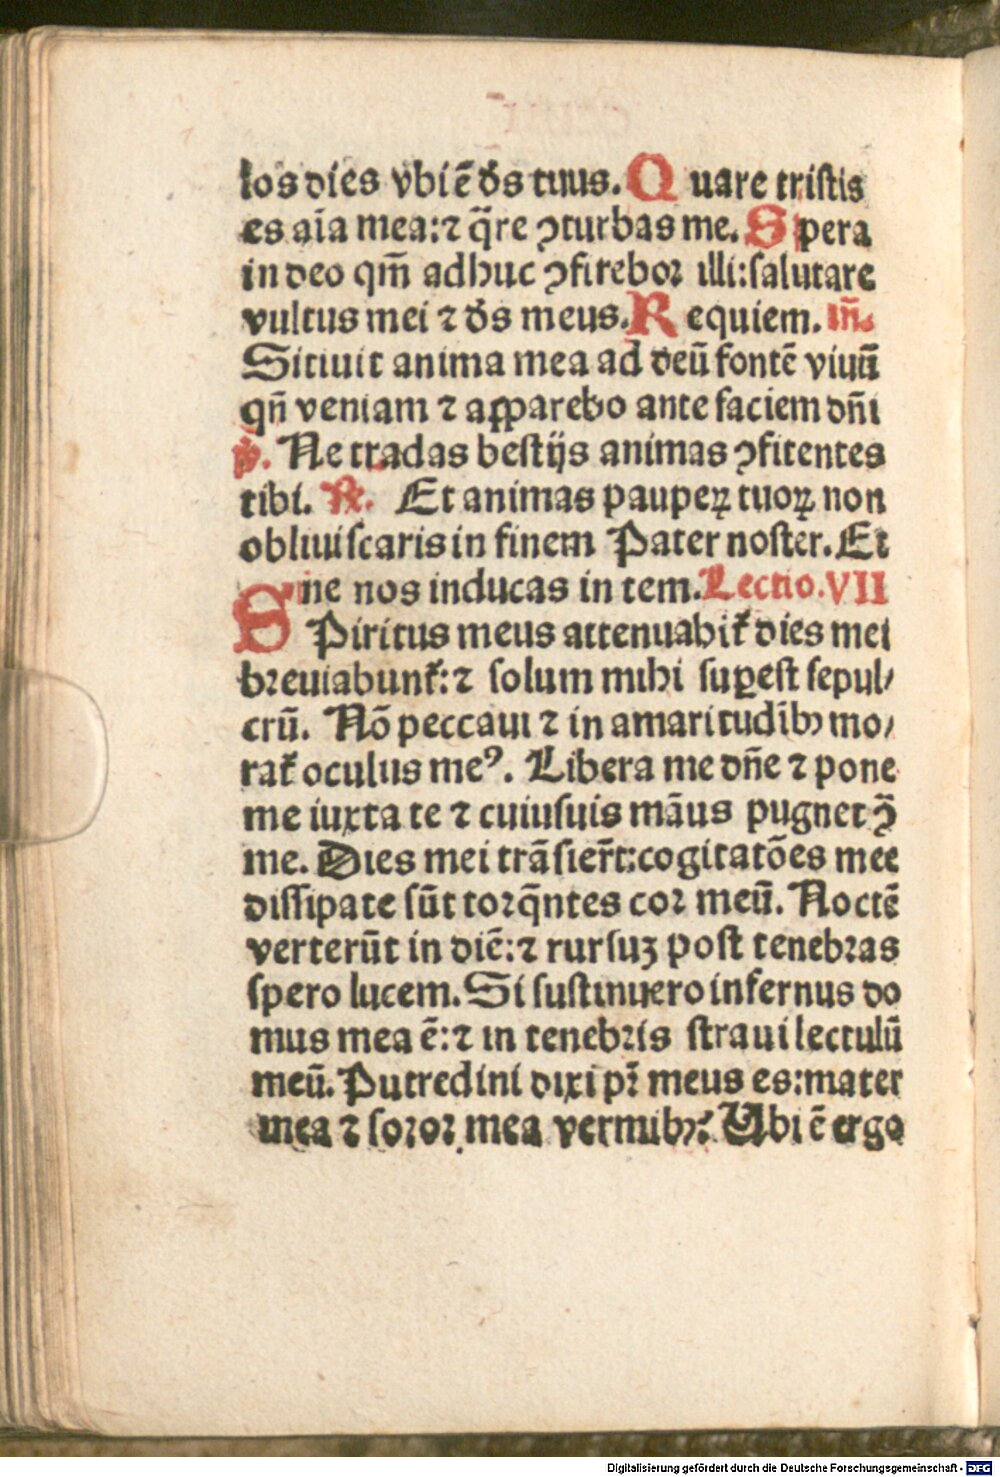 los dies vbi ē ds̄ tuus. Quare tristis
es aīa mea: ⁊ q̄re ꝯturbas me. Spera
in deo qm̄ adhuc ꝯfitebor illi: salutare
vultus mei ⁊ ds̄ meus. Requiem. añ.
Sitiuit anima mea ad deū fontē viuū
qn̄ veniam ⁊ apparebo ante faciem dn̄i
℣. Ne tradas bestijs animas ꝯfitentes
tibi. ℟. Et animas pauperꝝ tuoꝝ non
obliuiscaris in finem Pater noster. Et
ne nos inducas in tem. Lectio. VII
SPiritus meus attenuabit᷑ dies mei
breuiabunt᷑: ⁊ solum mihi suꝑest sepul/
crū. Nō peccaui ⁊ in amaritudīb⁹ mo/
rat᷑ oculus meꝰ. Libera me dn̄e ⁊ pone
me iuxta te ⁊ cuiusuis mānus pugnet ꝯ̄
me. Dies mei trāsier̄t: cogitatōes mee
dissipate sūt torq̄ntes cor meū. Noctē
verterūt in diē: ⁊ rursuꝫ post tenebras
spero lucem. Si sustinuero infernus do
mus mea ē: ⁊ in tenebris straui lectulū
meū. Putredini dixi pr̄ meus es: mater
mea ⁊ soror mea vermib⁹. Ubi ē ergo
Digitalisierung gefördert durch die Deutsche Forschungsgemeinschaft - DFG